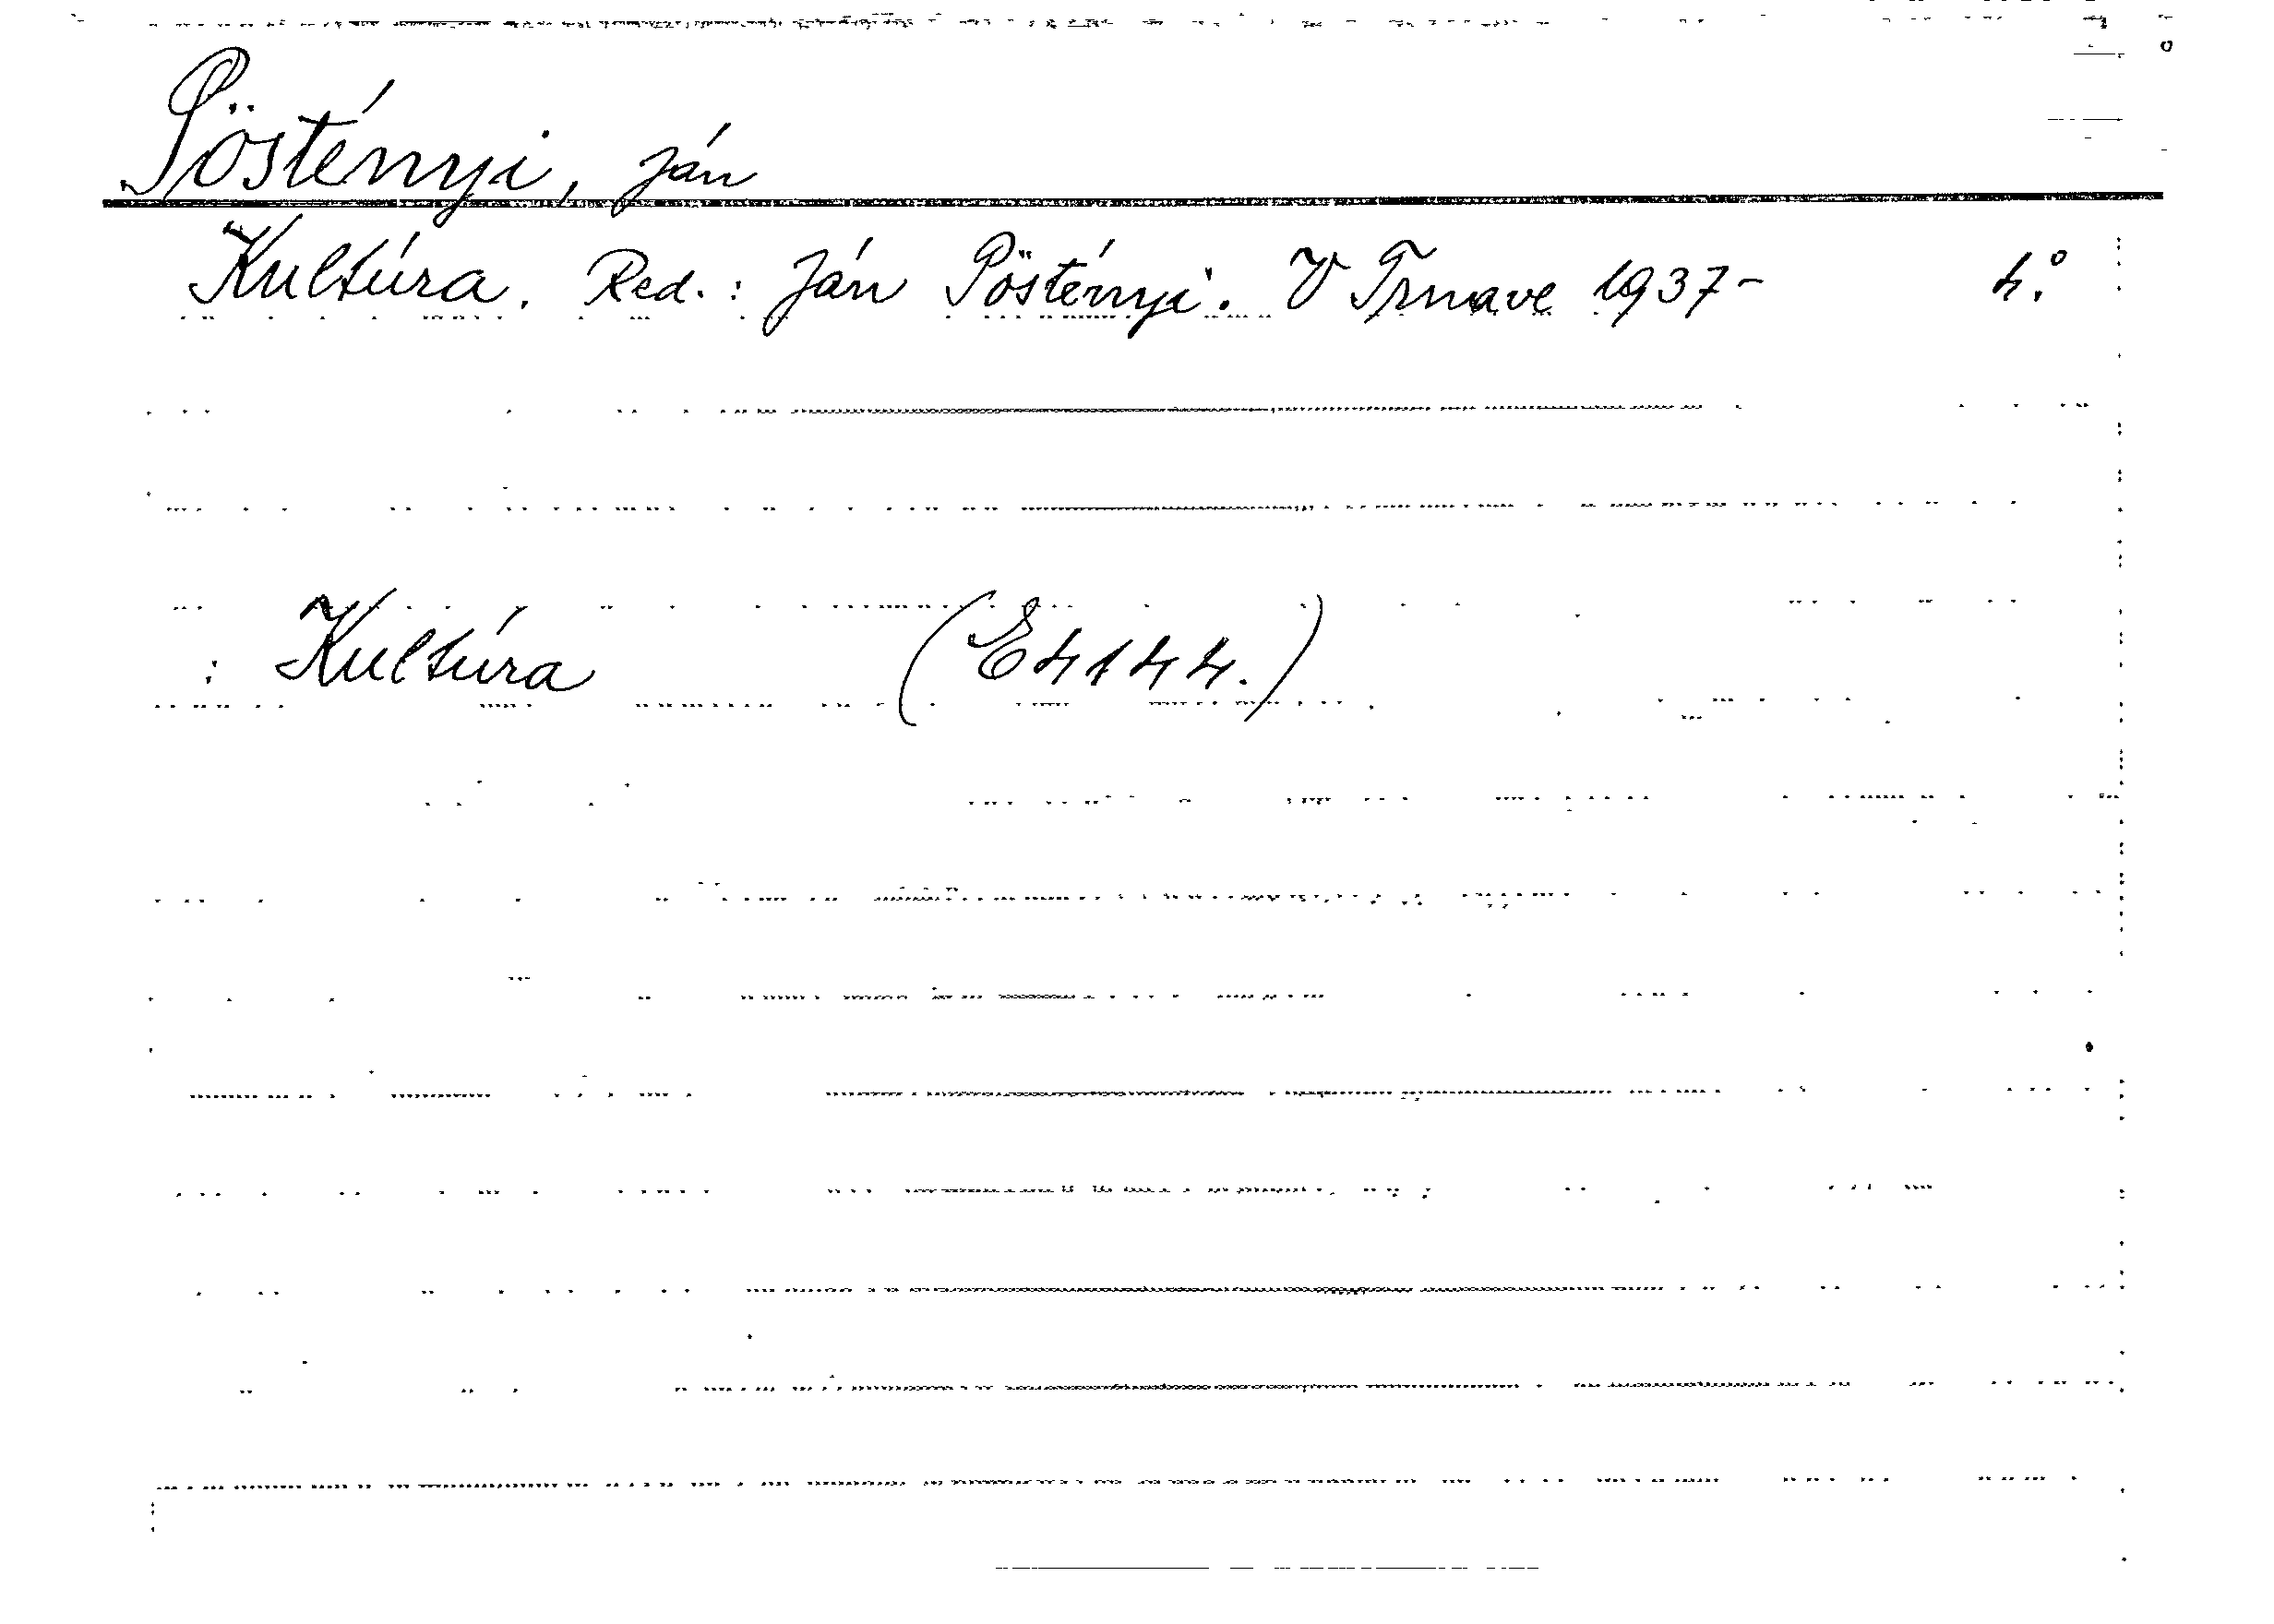 Pöstényi, Ján
Kultúra. Red.: Ján Pöstényi. V Trnave 1937- 4.°
: Kultúra (E4144.)